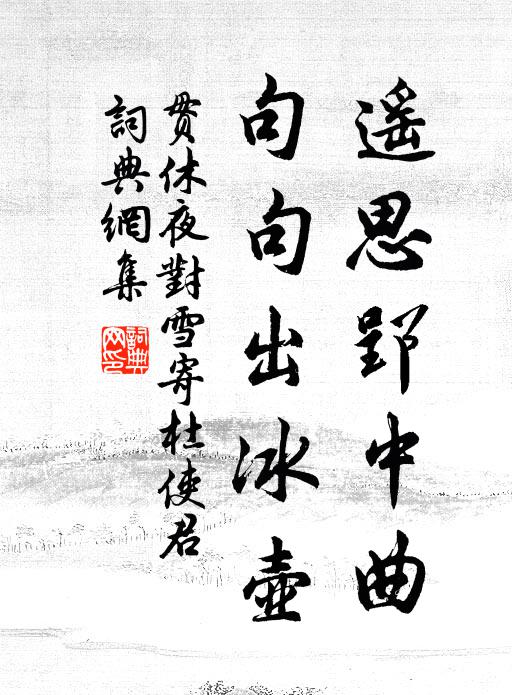 遥思郢中曲
句句出冰壺
貫休夜對雪寄杜使君
詞典網集
詞典
网印